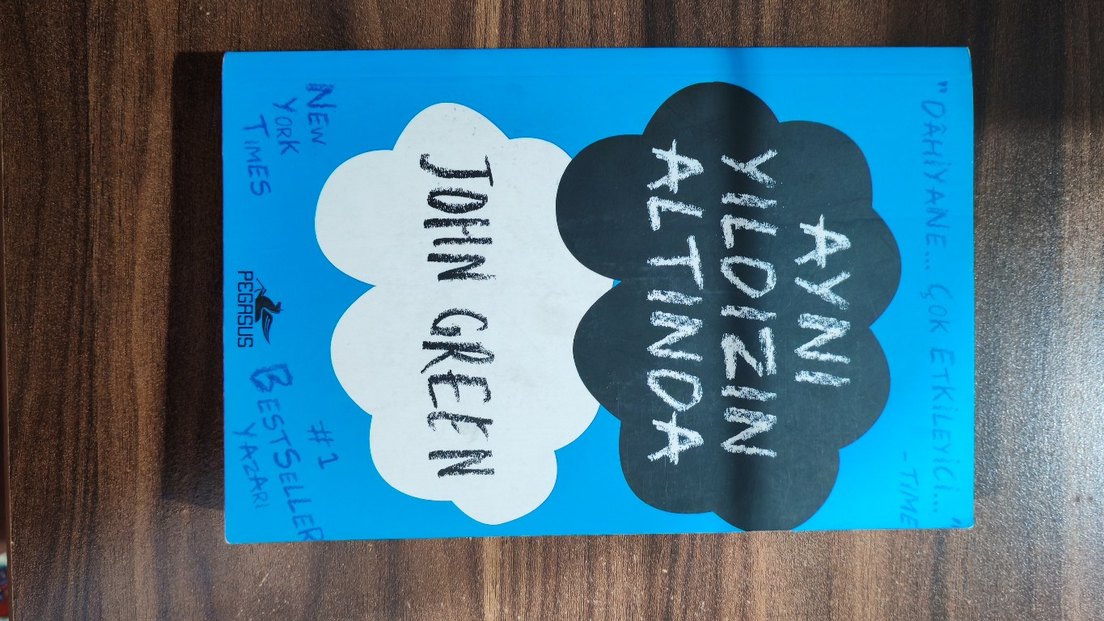 "DÂHİYANE... ÇOK ETKİLEYİCİ..."
-TIME
AYNI
YILDIZIN
ALTINDA
JOHN GREEN
NEW
YORK
TIMES
#1
BESTSELLER
YAZARI
PEGASUS